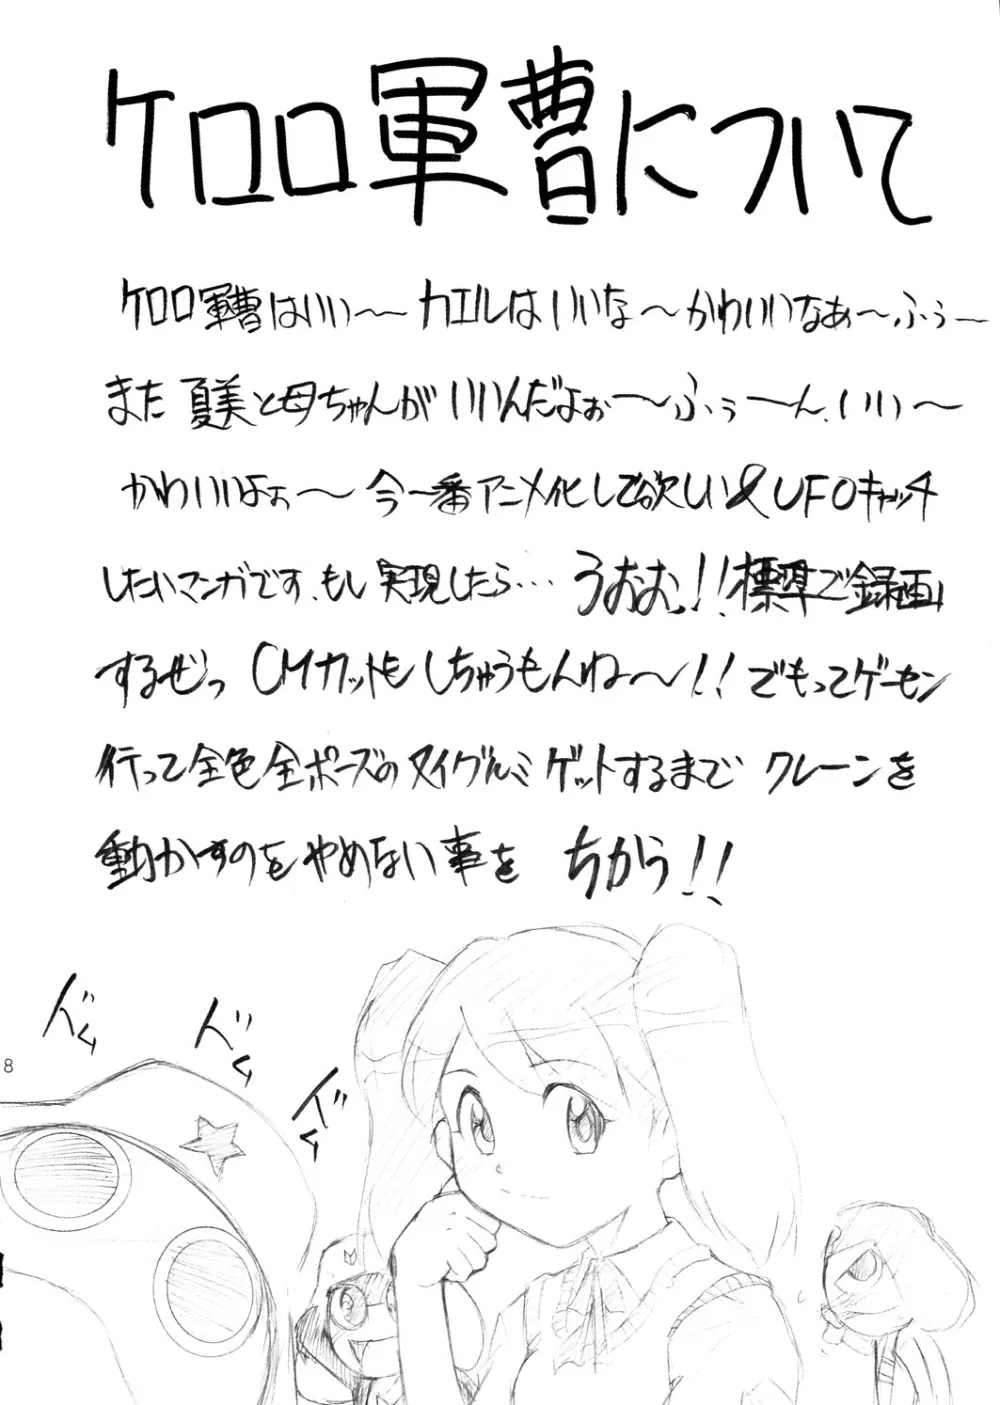 ケロロ軍曹について
ケロロ軍曹はいい〜カエルはいいな〜かわいいなぁ〜ふぅ〜
また夏美と母ちゃんがいいんだよぉ〜ふぅーん、いい〜
かわいいよぉ〜今一番アニメ化して欲しい&UFOキャッチ
したいマンガです、もし実現したら…うおおっ!!標準で録画
するぜっCMカットもしちゅうもんね〜!!でもってゲーセン
行って全色全ポーズのヌイグルミゲットするまでクレーンを
動かすのをやめない事をちかう!!
ドム
ドム
ドム
8